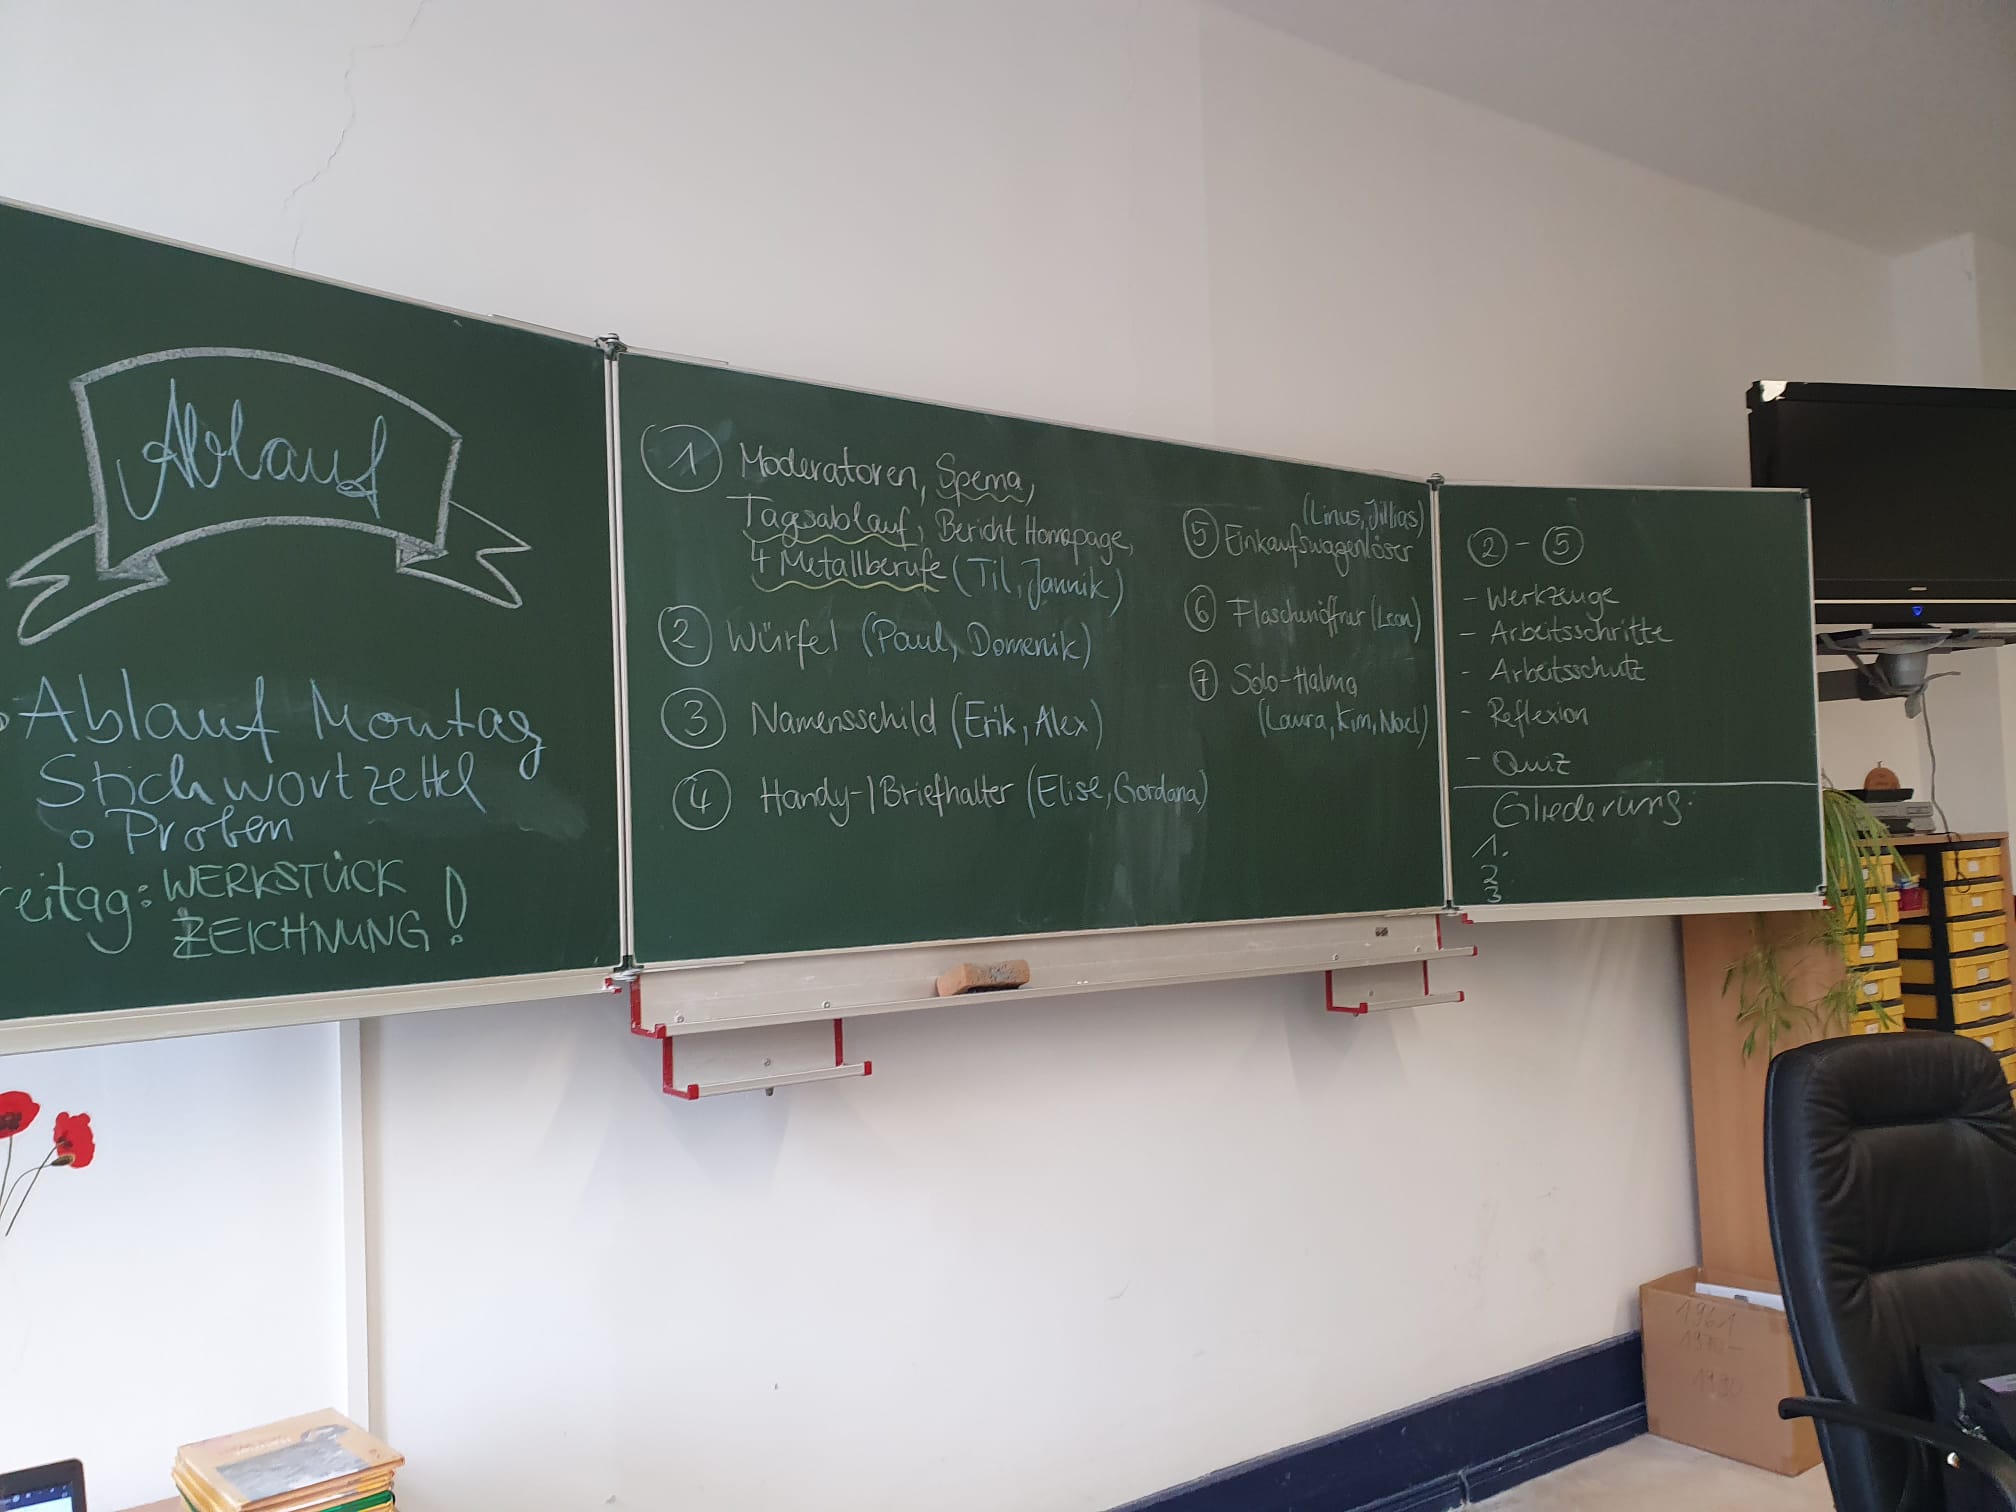 Ablauf
Ablauf Montag
Stichwortzettel
o Proben
reitag: WERKSTÜCK
ZEICHNUNG!
1 Moderatoren, Spema,
Tagsablauf, Bericht Homepage,
4 Metallberufe (Til, Jannik)
2 Würfel (Paul, Domenik)
3 Namensschild (Erik, Alex)
4 Handy-/Briefhalter (Elise, Gordana)
(Linus, Jillias)
5 Einkaufswagenlöser
6 Flaschenöffner (Leon)
7 Solo-Halma
(Laura, Kim, Noel)
2 - 5
- Werkzeuge
- Arbeitsschritte
- Arbeitsschutz
- Reflexion
- Quiz
Gliederung:
1.
2
3
1961
1970-
1990